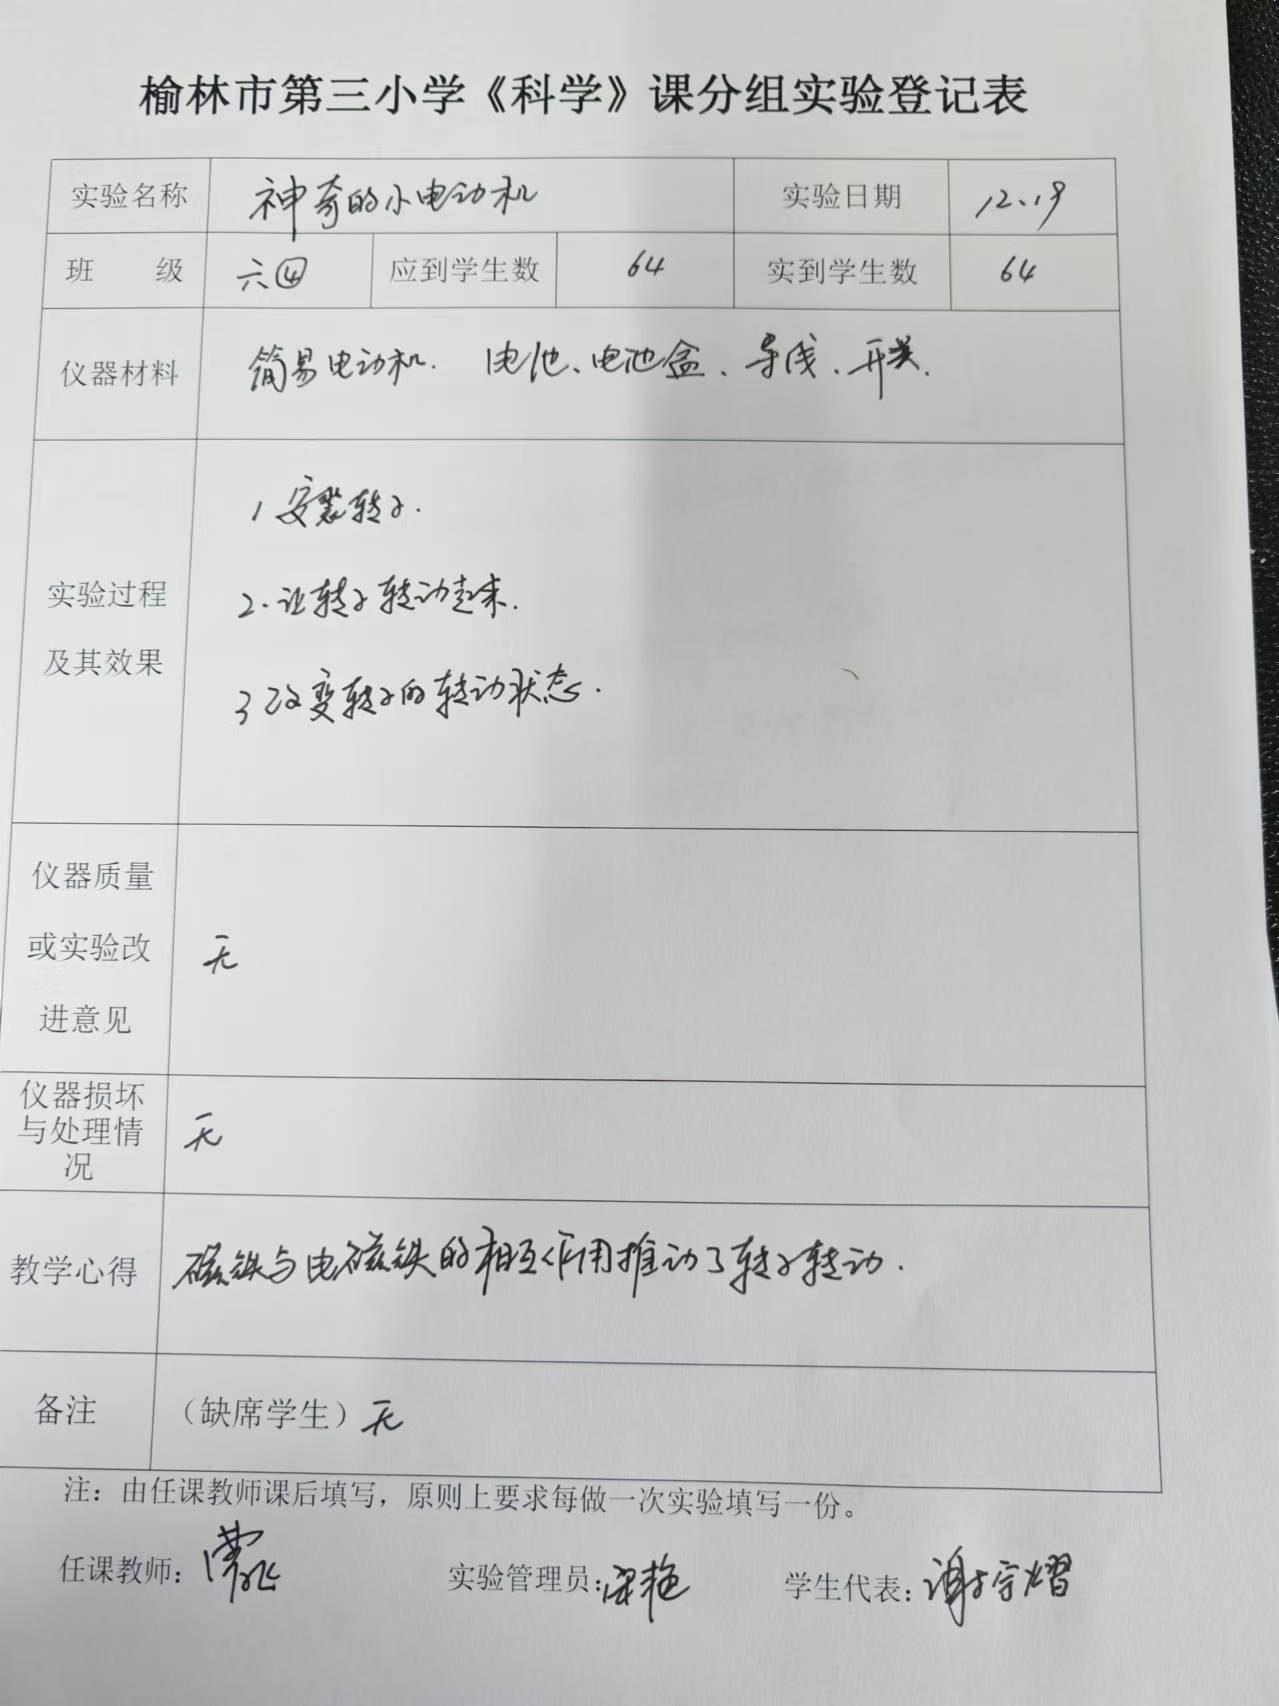 榆林市第三小学《科学》课分组实验登记表
实验名称 神奇的小电动机 实验日期 12.19
班 级 六④ 应到学生数 64 实到学生数 64
仪器材料 简易电动机. 电池、电池盒、导线、开关.
1 安装转子.
2. 让转子转动起来.
实验过程
及其效果
3 改变转子的转动状态.
仪器质量
或实验改
进意见
无
仪器损坏
与处理情
况
无
教学心得 磁铁与电磁铁的相互作用推动了转子转动.
备注 （缺席学生）无
注：由任课教师课后填写，原则上要求每做一次实验填写一份。
任课教师： 实验管理员： 学生代表：谢宇熠